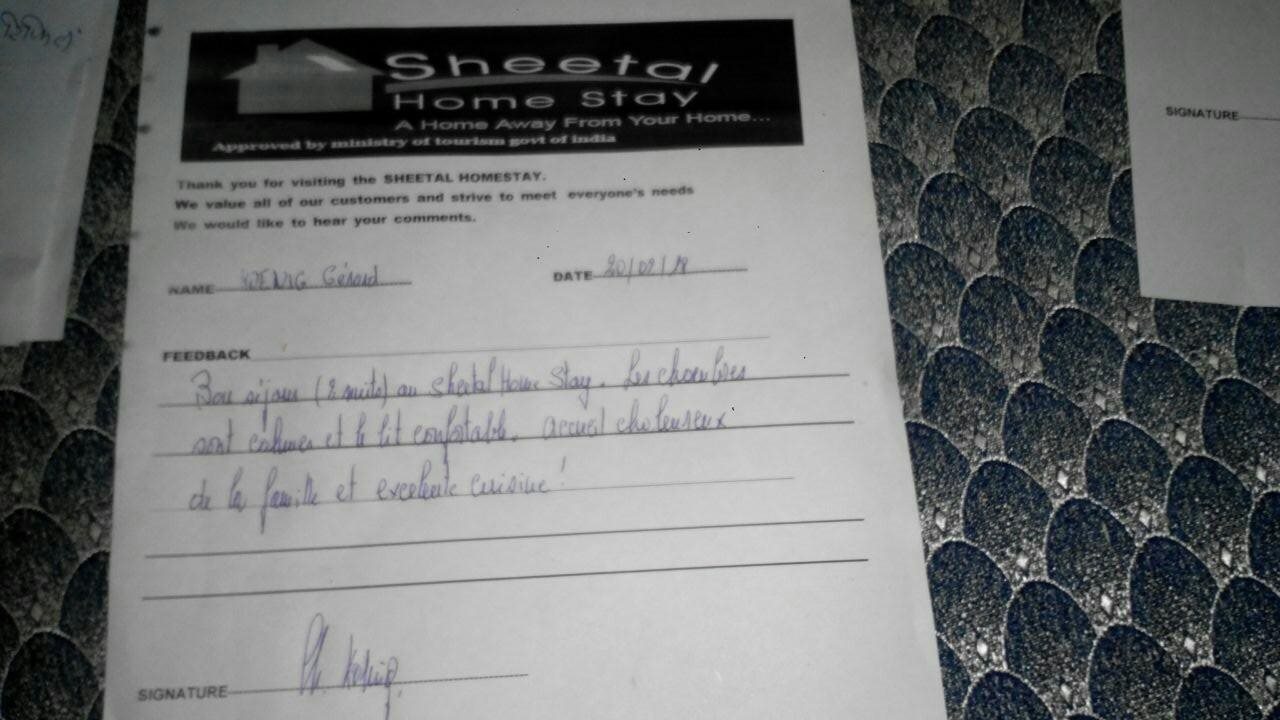 Sheetal
Home Stay
A Home Away From Your Home...
Approved by ministry of tourism govt of india
Thank you for visiting the SHEETAL HOMESTAY.
We value all of our customers and strive to meet everyone's needs
We would like to hear your comments.
NAME Gérard DATE
FEEDBACK
Bon séjour (2 nuits) au Sheetal Home Stay. Les chambres
sont calmes et le lit confortable. accueil chaleureux
de la famille et excellente cuisine!
SIGNATURE
SIGNATURE